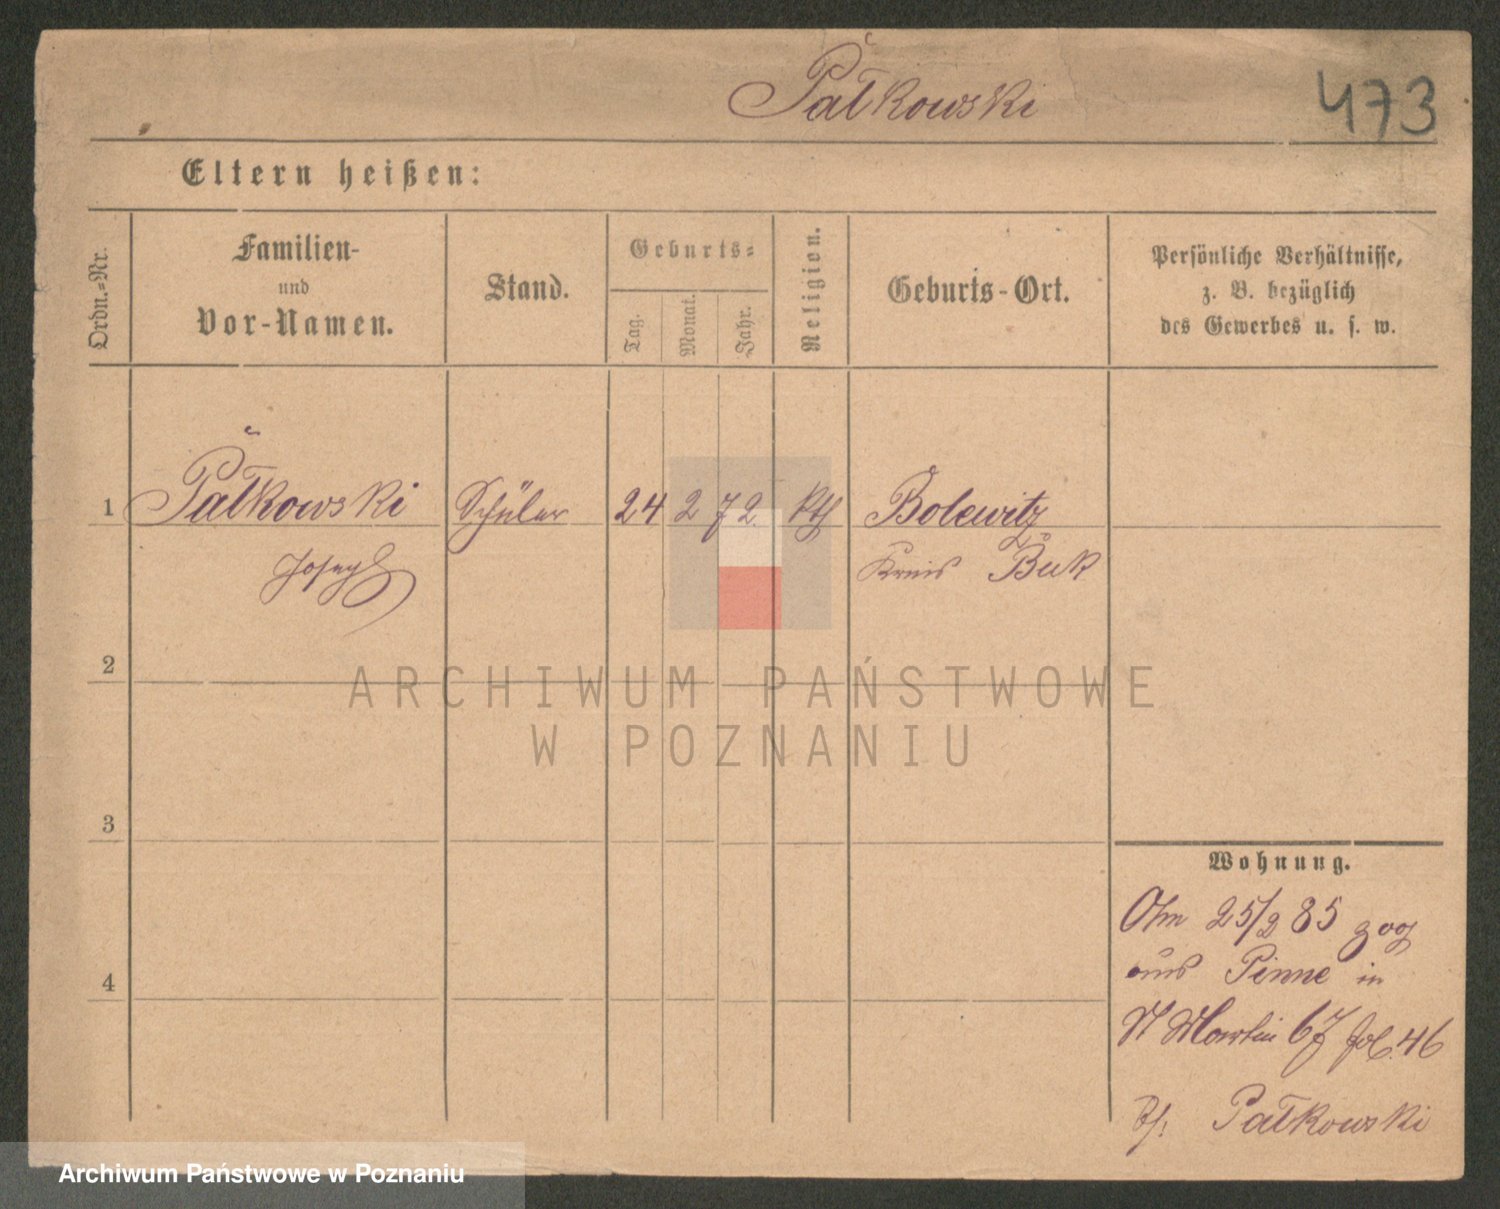 Pałkowski
473
Eltern heißen:
Ordn.-Nr.
Familien-
und
Vor-Namen.
Stand.
Geburts-
Tag.
Monat.
Jahr.
Religion.
Geburts-Ort.
Persönliche Verhältnisse,
z. B. bezüglich
des Gewerbes u. s. w.
1 Pałkowski Schüler 24 2 72 kth Bolewitz
Joseph Kreis Buk
2
ARCHIWUM PAŃSTWOWE
W POZNANIU
3
4
Wohnung.
Am 25/2 85 zog
aus Pinne in
St Martin 67 fol. 46
Pałkowski
Archiwum Państwowe w Poznaniu